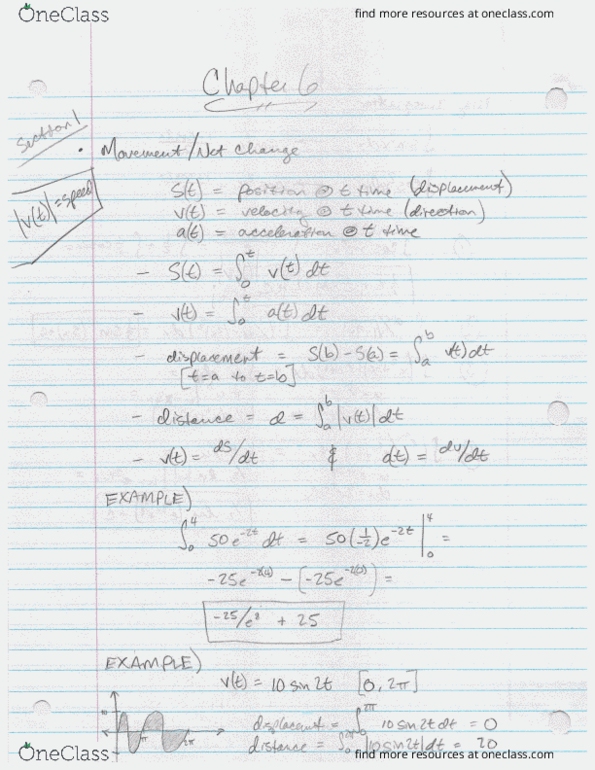 OneClass
find more resources at oneclass.com
Chapter 6
Section 1
• Movement/Net change
|v(t)| = speed
S(t) = position @ t time (displacement)
v(t) = velocity @ t time (direction)
a(t) = acceleration @ t time
- S(t) = ∫₀ᵗ v(t) dt
- v(t) = ∫₀ᵗ a(t) dt
- displacement = S(b) - S(a) = ∫ₐᵇ v(t) dt
[t=a to t=b]
- distance = d = ∫ₐᵇ |v(t)| dt
- v(t) = ds/dt & a(t) = dv/dt
EXAMPLE)
∫₀⁴ 50e^-2t dt = 50(1/-2)e^-2t |₀⁴ =
-25e^-2(4) - (-25e^-2(0)) =
-25/e⁸ + 25
EXAMPLE)
v(t) = 10 sin 2t [0, 2π]
π 2π
displacent = ∫₀^2π 10 sin 2t dt = 0
distance = ∫₀^2π |10 sin 2t| dt = 20
OneClass
find more resources at oneclass.com